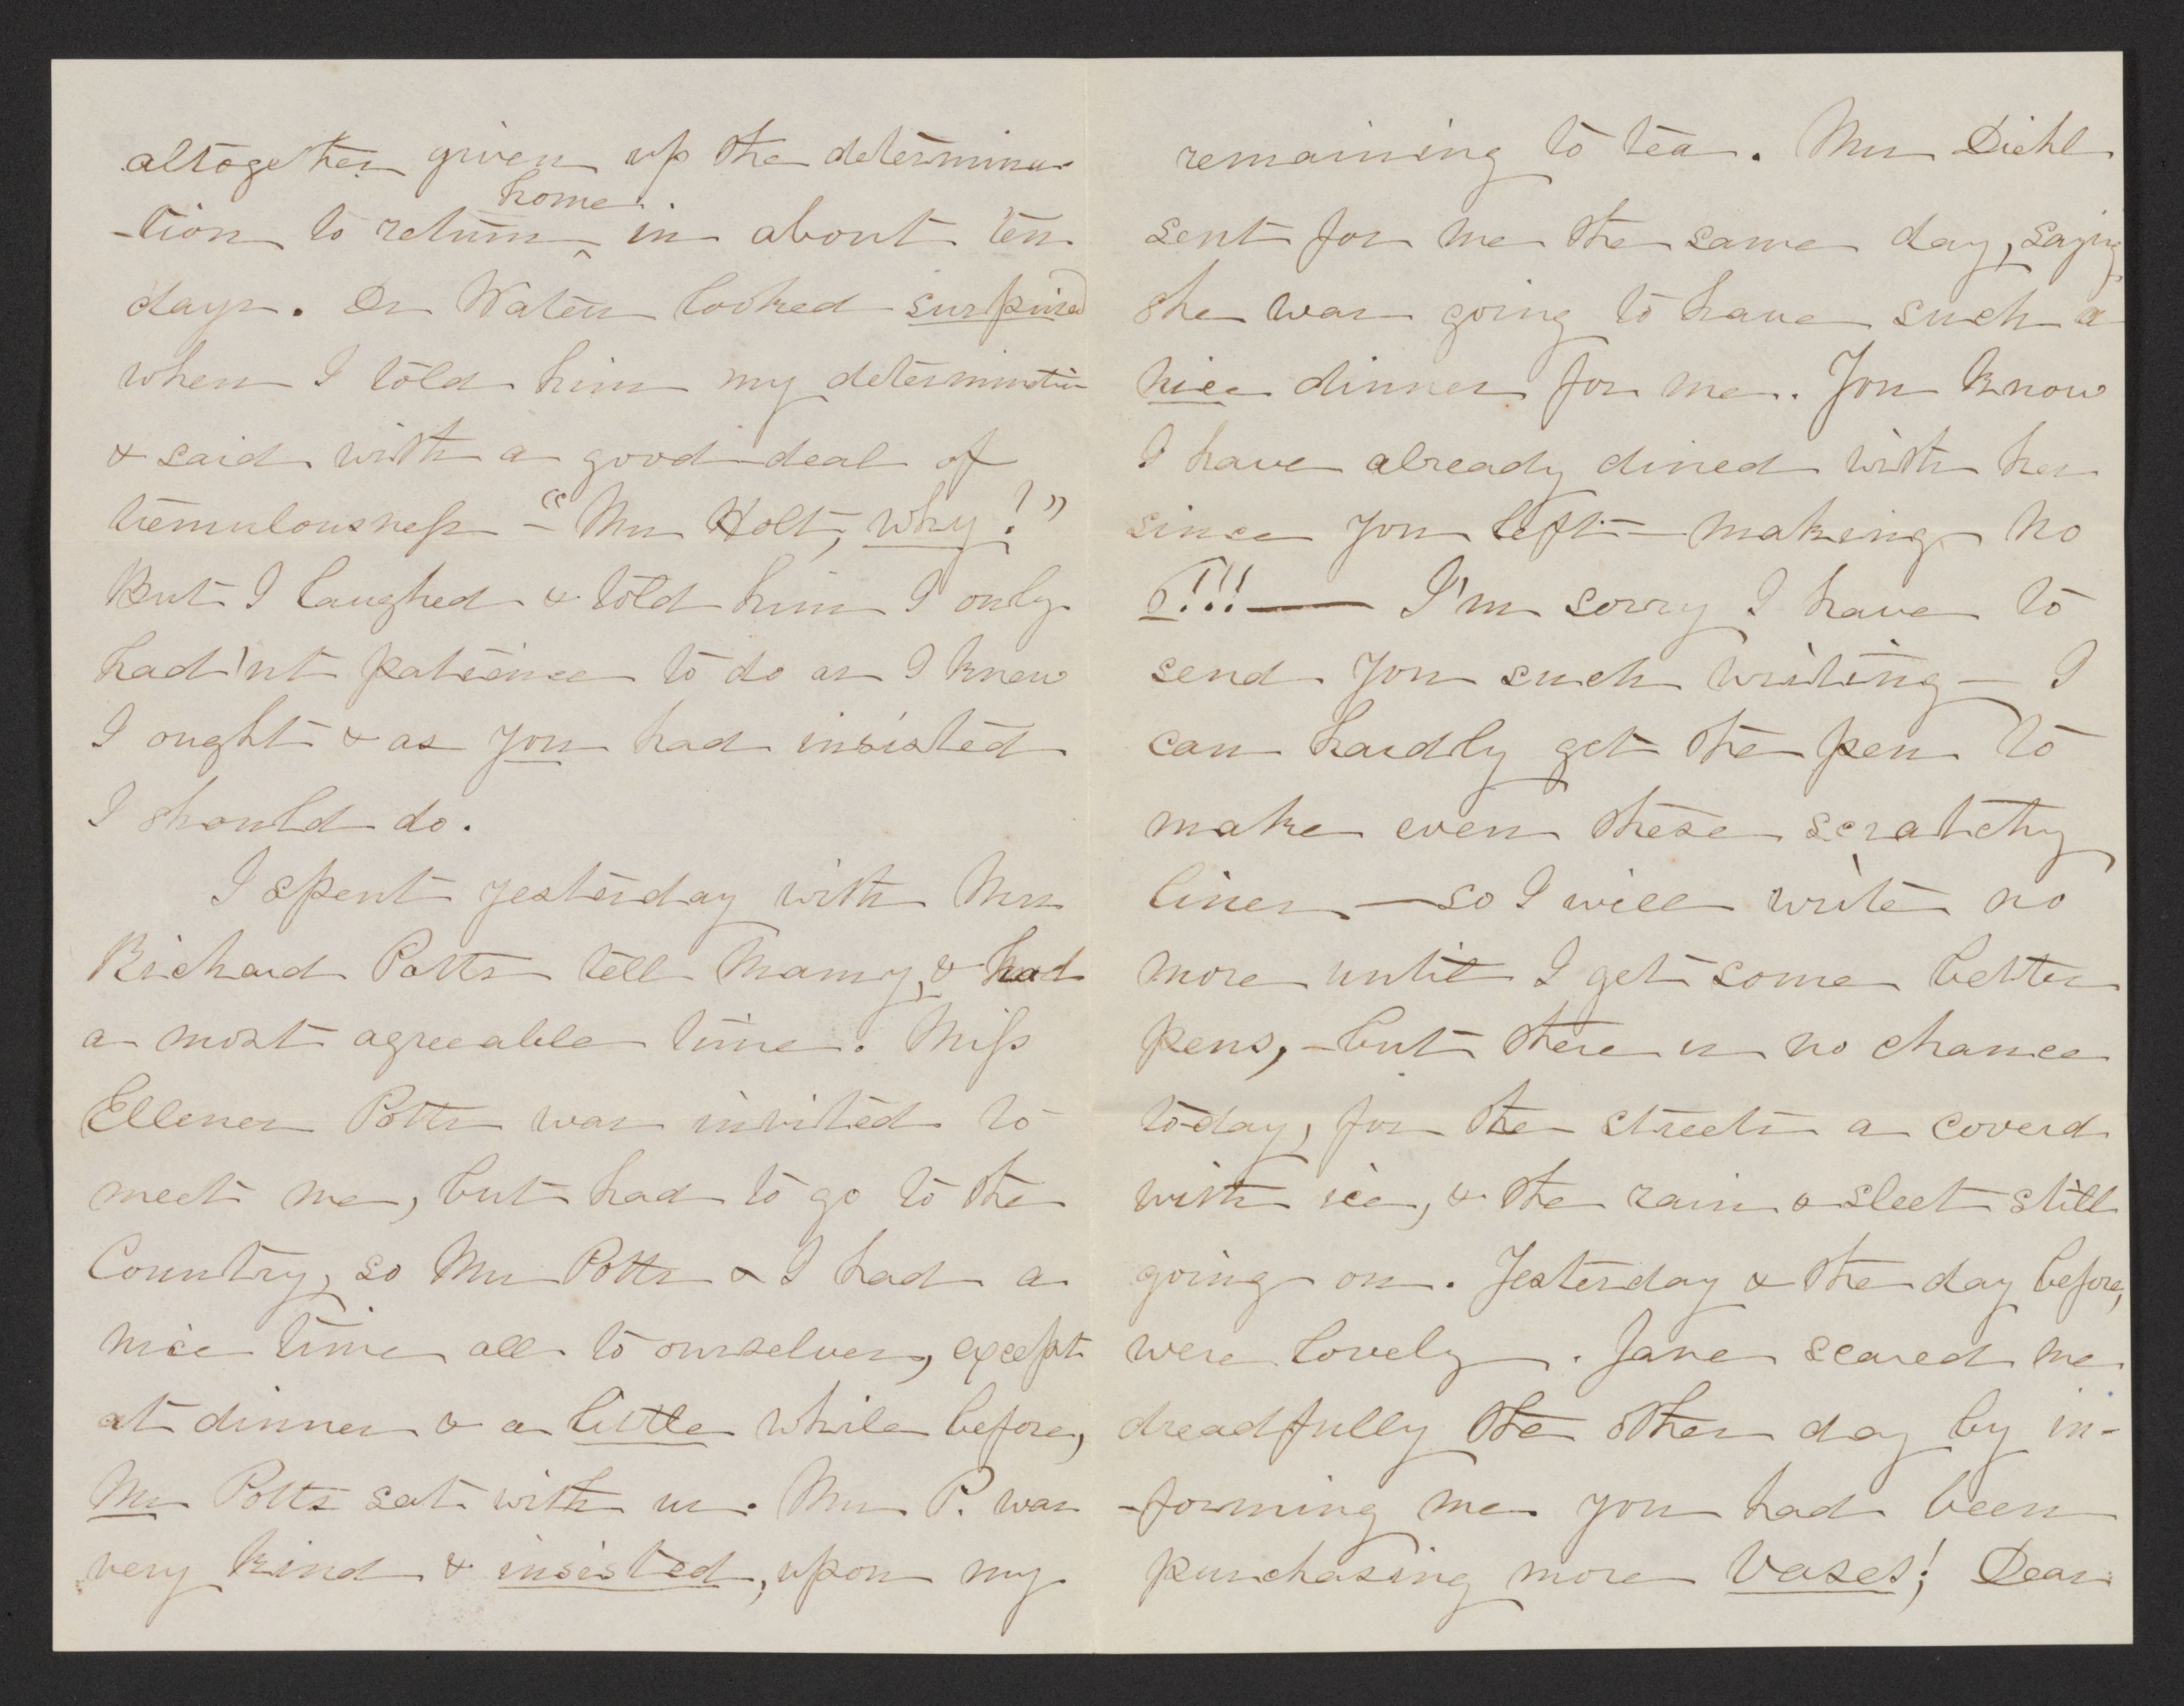 altogether given up the determina-
-tion to return home in about ten
days. Dr Waters looked surprised
when I told him my determination
& said with a good deal of
tremulousness - "Mrs Holt, why!"
But I laughed & told him I only
had'nt patience to do as I knew
I ought & as you had insisted
I should do.
I spent yesterday with Mrs
Richard Potts tell Mamy, & had
a most agreeable time. Miss
Ellener Potts was invited to
meet me, but had to go to the
Country, so Mrs Potts & I had a
nice time all to ourselves, except
at dinner & a little while before,
Mr Potts sat with us. Mrs P. was
very kind & insisted, upon my
remaining to tea. Mrs Diehl
sent for me the same day, saying
she was going to have such a
nice dinner for me. You know
I have already dined with her
since you left - making no
6!!! — I'm sorry I have to
send you such writing - I
can hardly get the pen to
make even these scratchy
lines — so I will write no
more until I get some better
pens, - but there is no chance
to-day, for the streets a coverd
with ice, & the rain & sleet still
going on. Yesterday & the day before,
were lovely. Jane scared me
dreadfully the other day by in-
-forming me you had been
purchasing more Vases! Dear